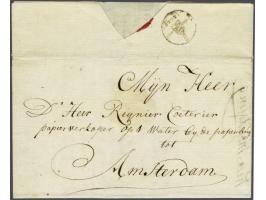 Mÿn Heer
D'Heer Regnier Coeterier
papierverkoper op 't Water by de papenbrug
tot
Amsterdam